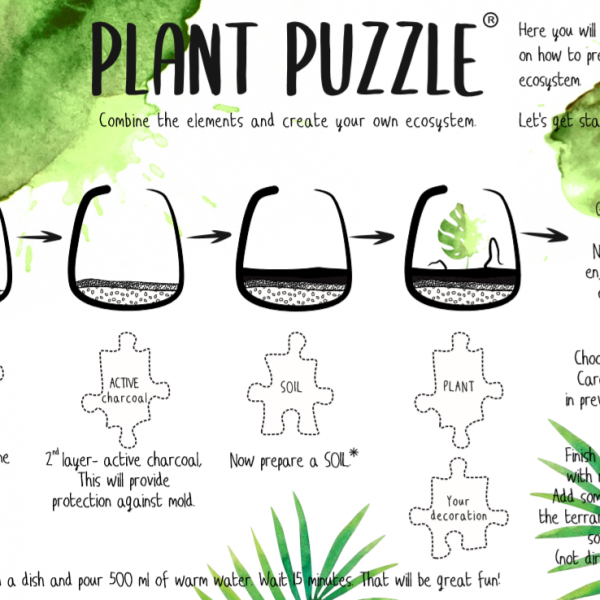 PLANT PUZZLE®
Combine the elements and create your own ecosystem.
Here you will
on how to pre
ecosystem.
Let's get sta
N
en
ACTIVE
charcoal
SOIL
PLANT
Your
decoration
2nd layer- active charcoal,
This will provide
protection against mold.
Now prepare a SOIL*
Choo
Care
in prev
Finish
with
Add som
the terra
so
(not dir
a dish and pour 500 ml of warm water. Wait 15 minutes. That will be great fun!